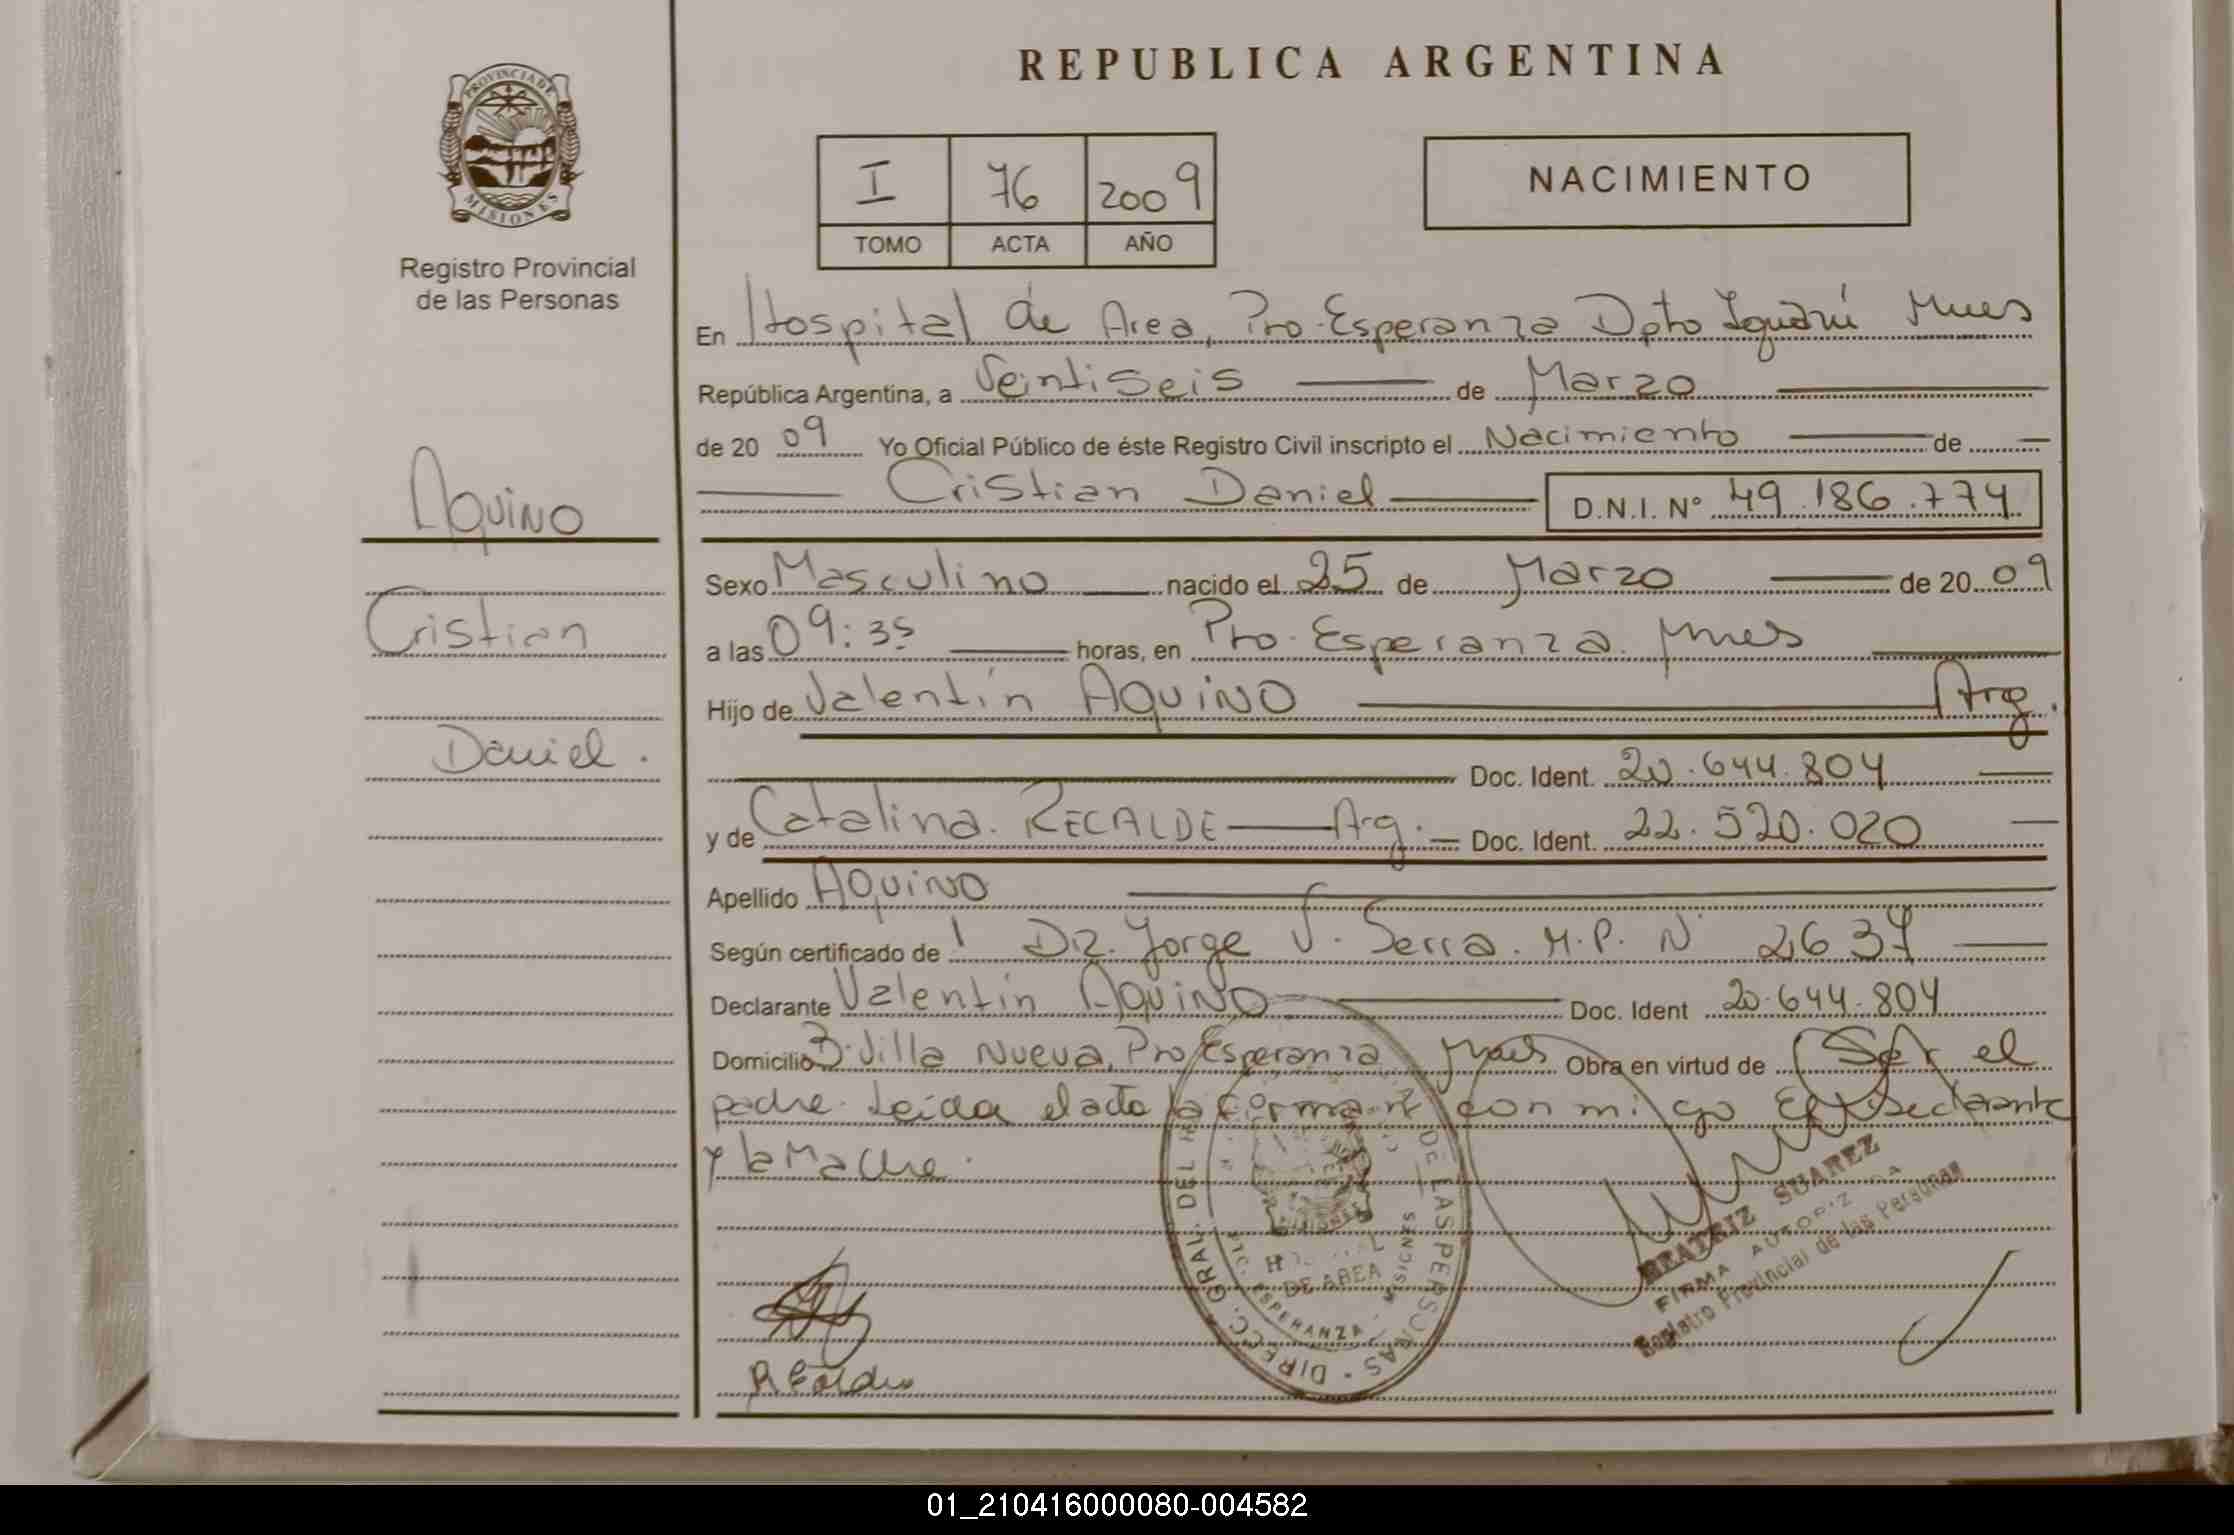 REPUBLICA ARGENTINA
PROVINCIA DE
MISIONES
Registro Provincial
de las Personas
I 76 2009
TOMO ACTA AÑO
NACIMIENTO
En Hospital de Area, Pto. Esperanza Dpto Iguazú Mnes
República Argentina, a Veintiseis de Marzo
de 20 09 Yo Oficial Público de éste Registro Civil inscripto el Nacimiento de
Cristian Daniel D.N.I. Nº 49.186.774
AQUINO
Cristian
Daniel.
Sexo Masculino nacido el 25 de Marzo de 20 09
a las 09:35 horas, en Pto. Esperanza. Mnes
Hijo de Valentín AQUINO Arg.
Doc. Ident. 20.644.804
y de Catalina. RECALDE Arg. Doc. Ident. 22.520.020
Apellido AQUINO
Según certificado de Dr. Jorge V. Serra. M.P. Nº 2637
Declarante Valentín AQUINO Doc. Ident 20.644.804
Domicilio B. Villa Nueva, Pto Esperanza Mnes Obra en virtud de Ser el
padre. Leída el acta la firman con migo El Declarante
y la Madre.
DIRECC. GRAL. DEL DE LAS PERSONAS
MISIONES
DE AREA
PTO. ESPERANZA - MISIONES
BEATRIZ SUAREZ
FIRMA AUTORIZADA
Registro Provincial de las Personas
01_210416000080-004582